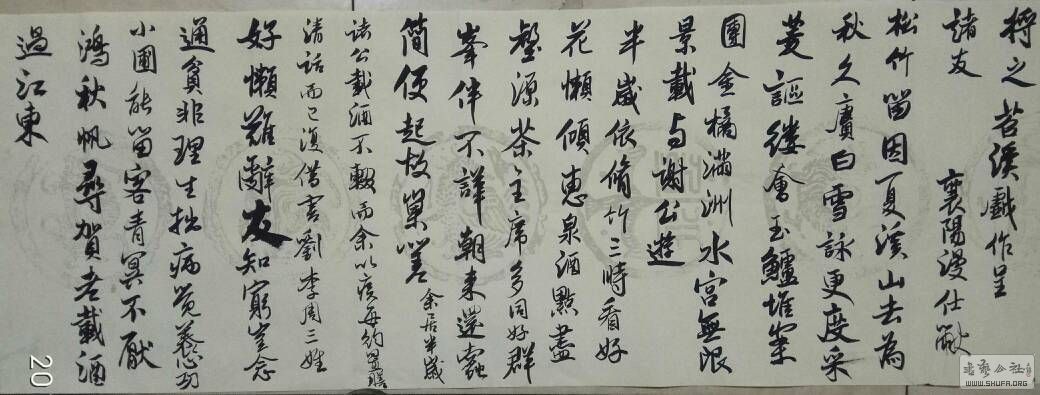 将之苕溪戏作呈
诸友
襄阳漫仕黻
松竹留因夏溪山去为
秋久赓白雪咏更度采
菱謳缕會玉鱸堆案
團金橘滿洲水宫無限
景載与謝公遊
半歲依脩竹三時看好
花懶傾惠泉酒點盡
壑源茶主席多同好群
峯伴不譁朝來還蠹
簡便起故巢嗟余居半歲
诸公載酒不輟而余以疾每約置膳
清話而已復借书劉李周三姓
好懶難辭友知窮豈念
通貧非理生拙病覺養心功
小圃能留客青冥不厭
鴻秋帆尋賀老載酒
過江東
20
書藝公社
WWW.SHUFA.ORG